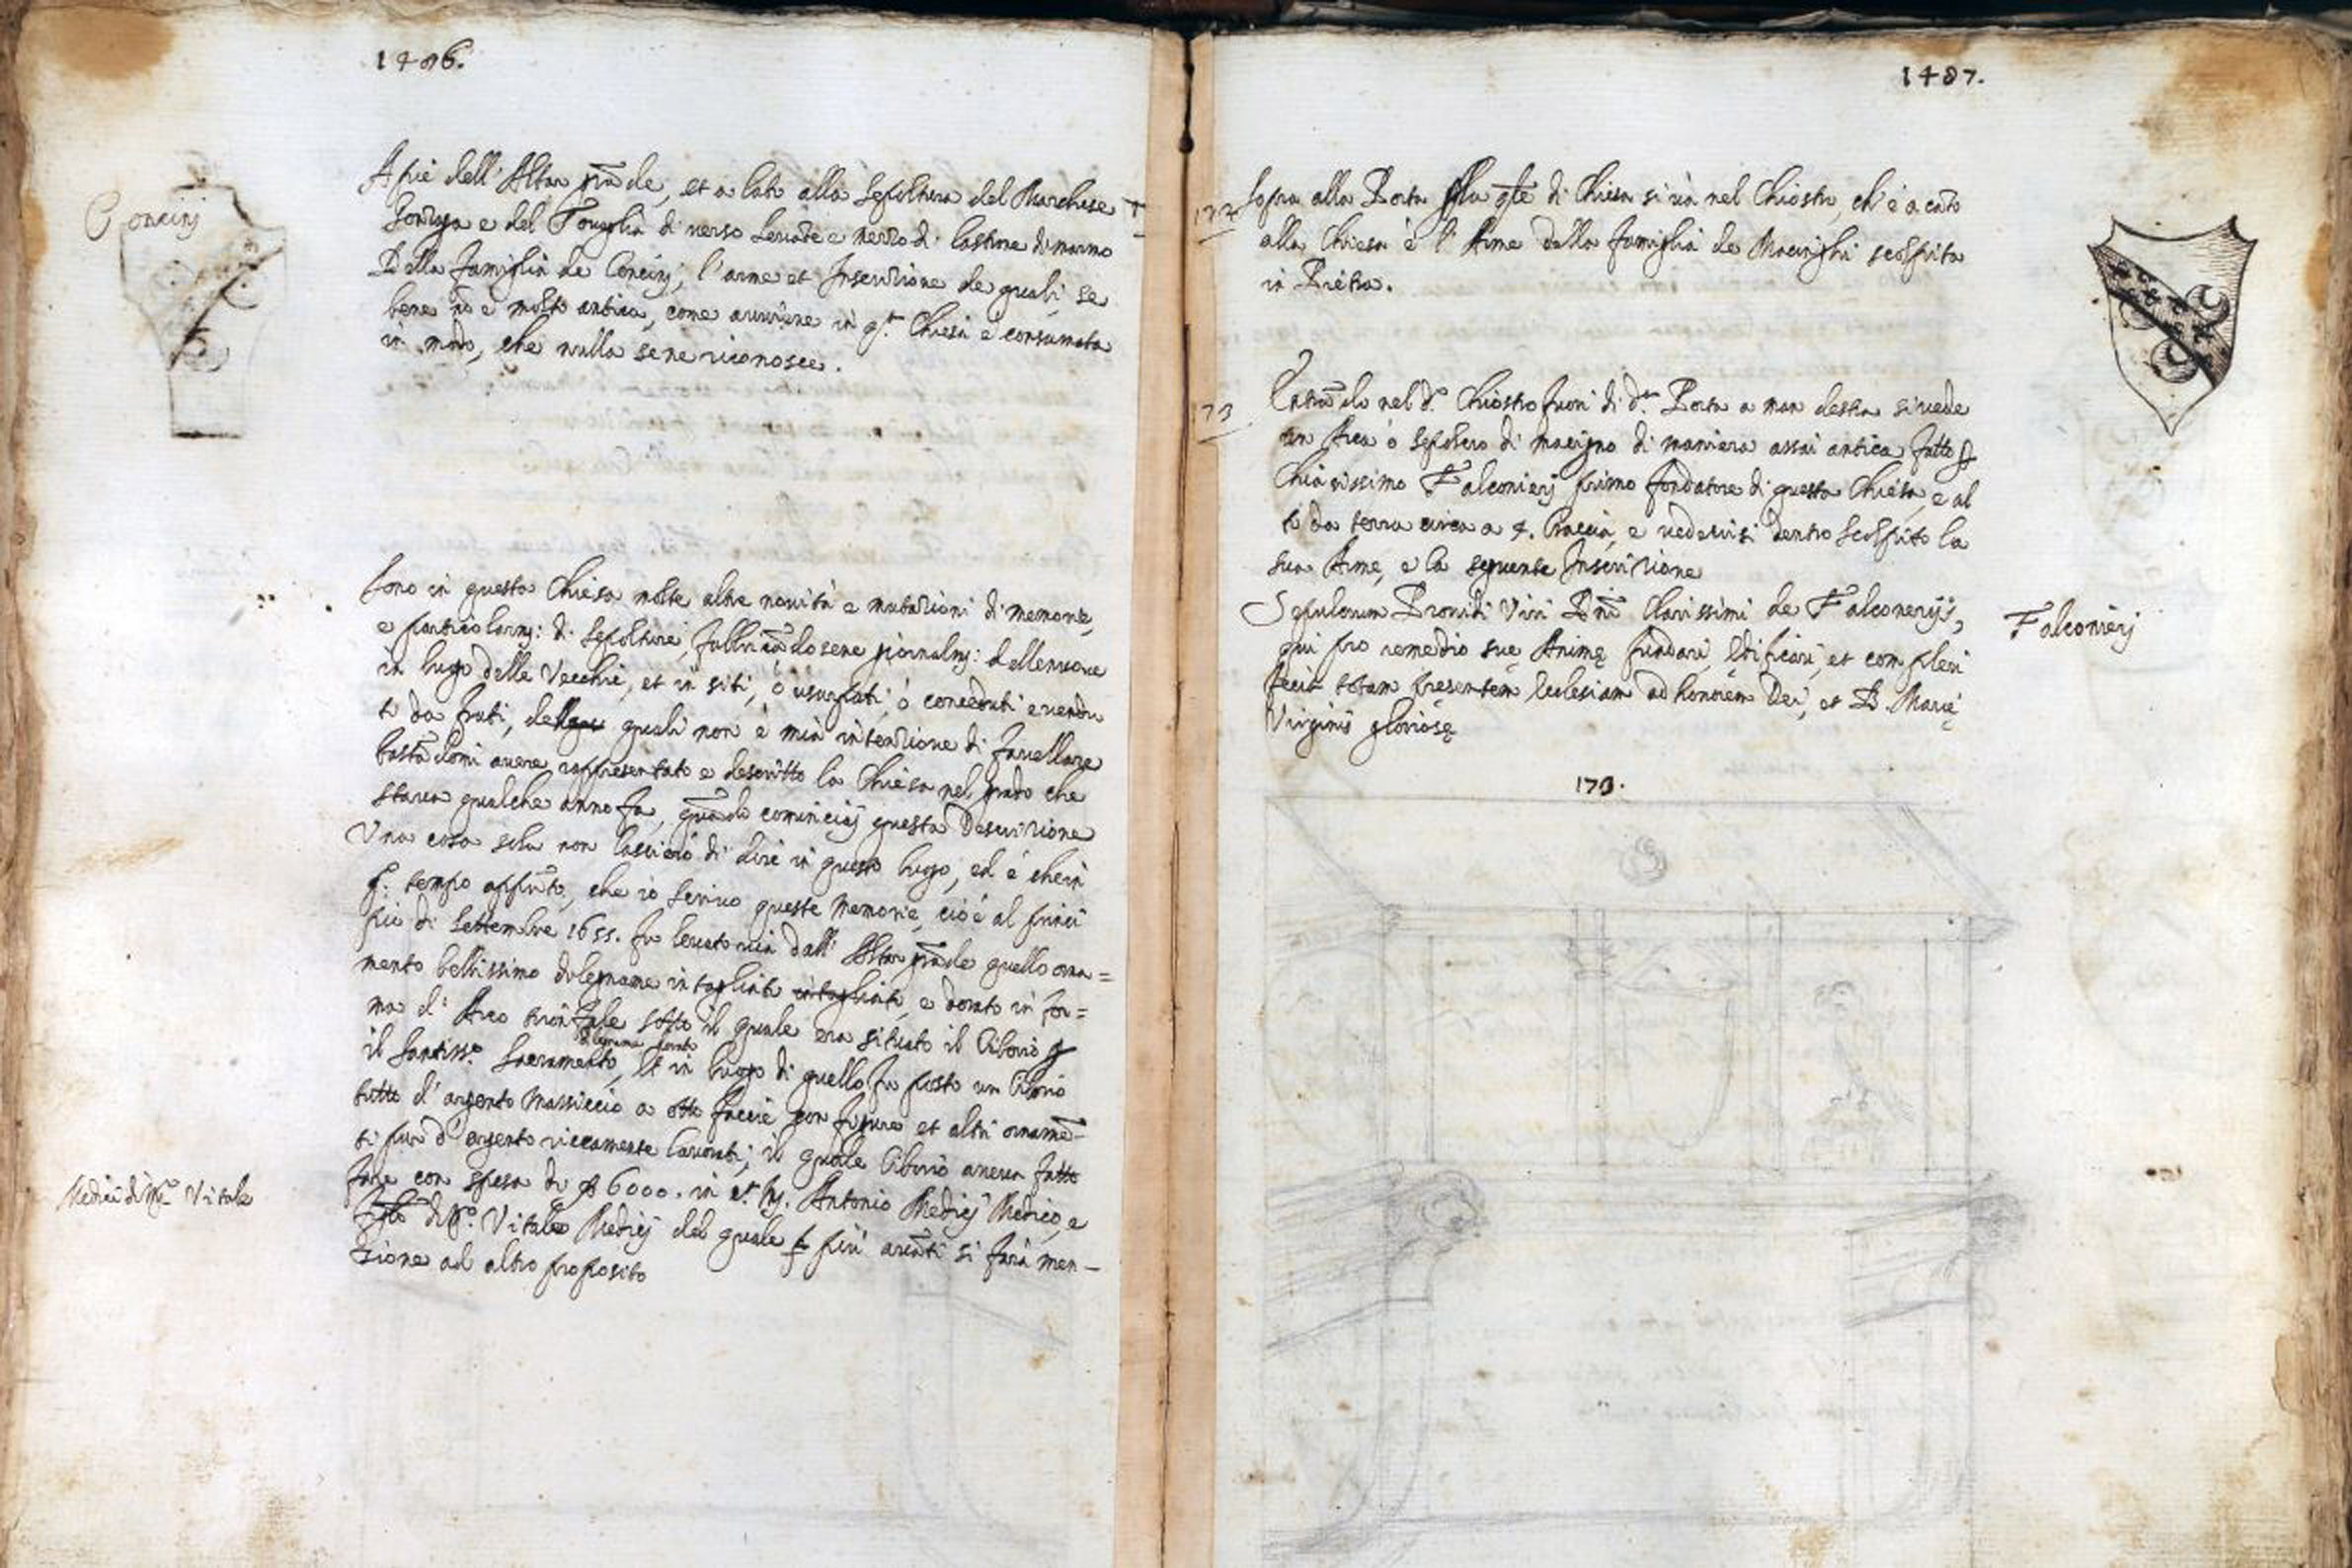 1486.
Concinj
A piè dell'Altar grãde, et a lato alla Sepoltura del Marchese
e del Tovaglia di verso Levãte e nerzo di lastrone di marmo
Della famiglia de Concinj, l'arme et Inscrizione de quali, se
bene nõ è molto antica, come avviene in q.ta Chiesa è consumata
in modo, che nulla se ne riconosce.
Sono in questa Chiesa molte altre novità e mutazioni di memorie,
e particolarm: di Sepolture, fabbricãdosene giornalm: delle nuove
in luogo delle Vecchie, et in siti, ò usurpati, ò conceduti e vendu
ti da frati, delle quali non è mia intenzione di favellare
bastãdomi avere rappresentato e descritto la Chiesa nel grado che
stava qualche anno fa, quãdo cominciaj questa Descrizione
Una cosa sola non lascierò di dire in questo luogo, ed è che in
q.o tempo appũto, che io scrivo queste memorie, cioè al princi
pio di Settembre 1655. fu levato via dall'Altar grãde quello orna=
mento bellissimo di legname intagliato intagliato, e dorato in for=
ma d'Arco trionfale sotto il quale era situato il Ciborio p
di legname dorato
il Santiss.o Sacramento, et in luogo di quello fu posto un Ciborio
tutto d'argento massiccio a otto faccie con figure et altri ornamẽ-
ti pur d'argento riccamente lavorati, il quale Ciborio aveva fatto
fare con spesa di 6000. in Antonio Medicj Medico, e
Medici di M.o Vitale
di M.o Vitale Medicj del quale più avãti si farà men-
zione ad altro proposito
1487.
172
Sopra alla Porta p la q̃le di Chiesa si và nel Chiostro, ch'è a cãto
alla Chiesa è l'Arme della famiglia de Macinghi scolpita
in Pietra.
173
Entrãdo nel d.o Chiostro fuori di d.ta Porta a man destra si vede
un Arca ò Sepolcro di macigno di maniera assai antica fatto p
Chiarissimo Falconierj primo fondatore di questa Chiesa, e al
to da terra circa a 4. braccia, e vedesi dentro scolpito la
sua Arme, e la seguente Inscrizione
Sepulcrum Providi Viri Dñi Clarissimi de Falconerijs,
Falconierj
qui pro remedio suę Animę fundari, Edificari, et compleri
fecit totam presentem Ecclesiam ad honorem Dei, et B. Marię
Virginis gloriosę
173.